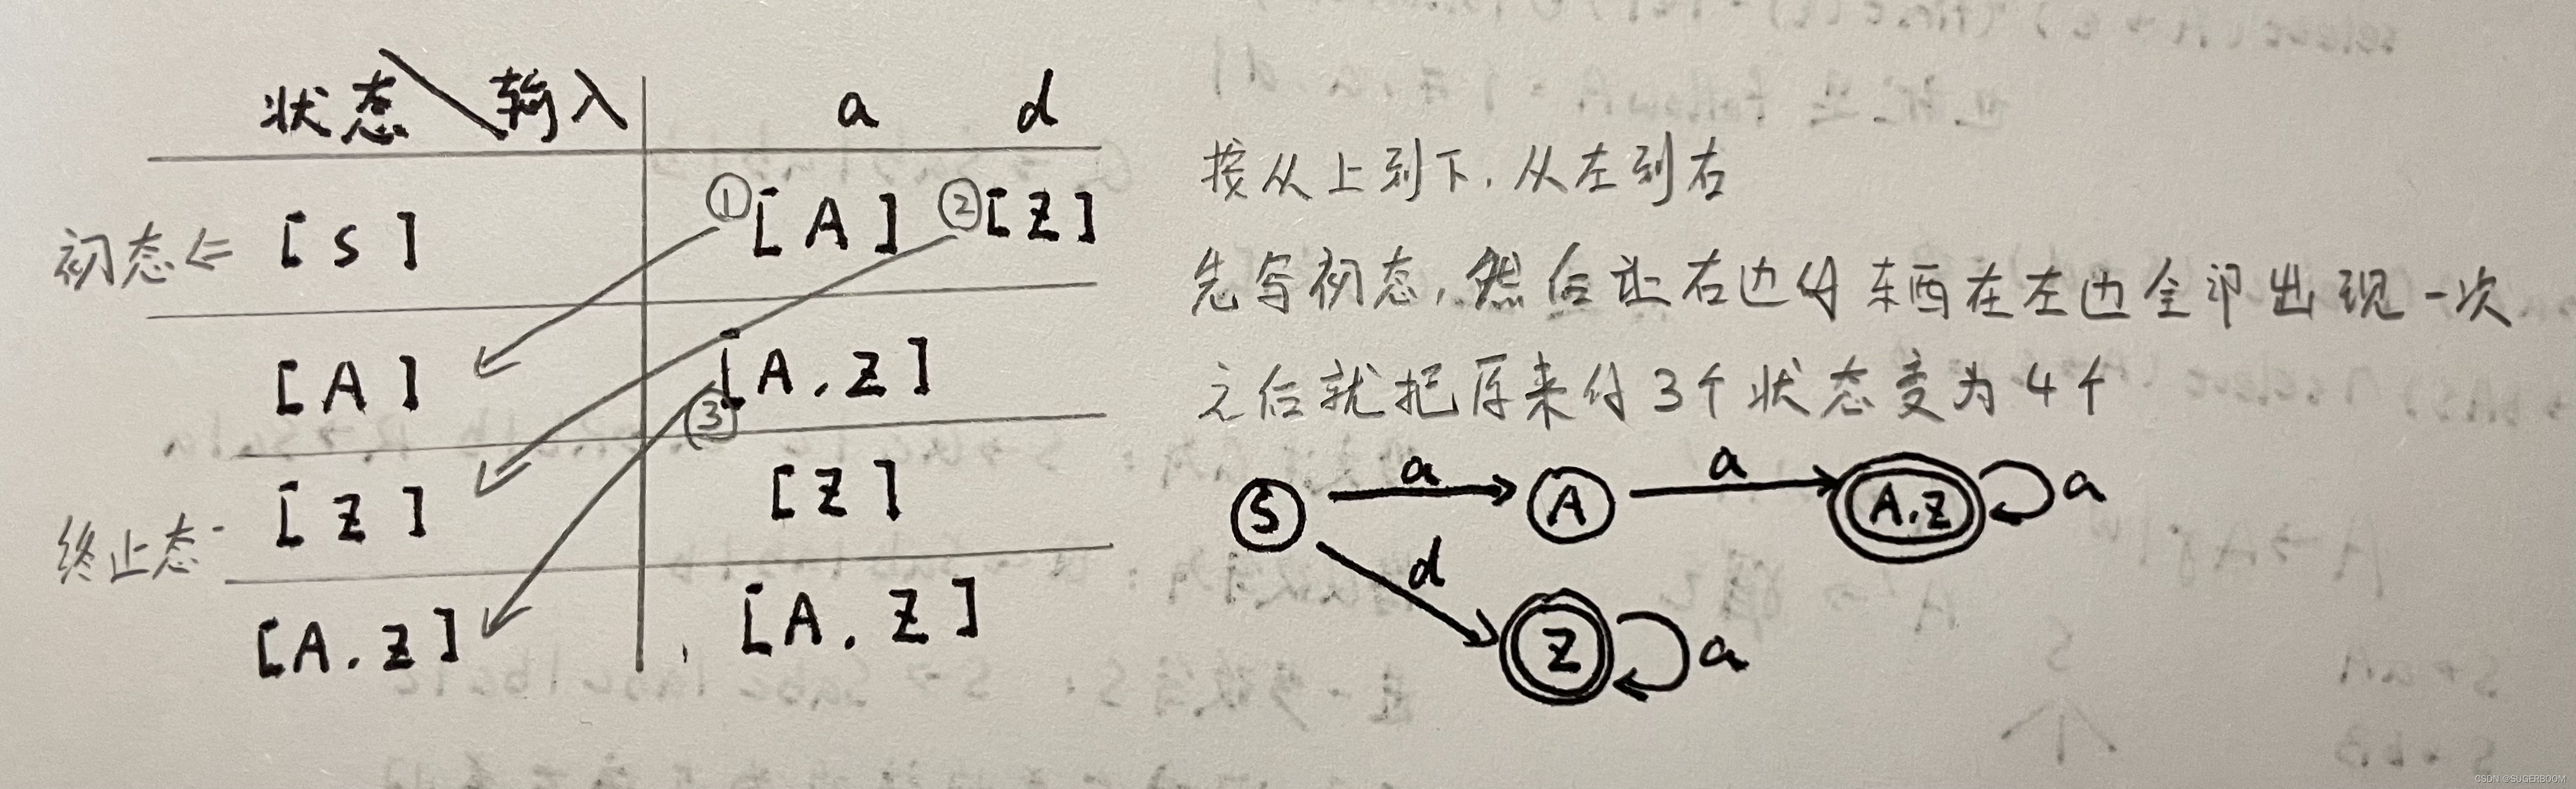 状态\输入 a d
初态⇐ [S] ①[A] ②[Z]
[A] ③[A.Z]
终止态- [Z] [Z]
[A.Z] [A.Z]
按从上到下.从左到右
先写初态,然后让右边的东西在左边全部出现一次
之后就把原来的3个状态变为4个
S a A a A.Z a
d Z a
CSDN @SUGERBOOM